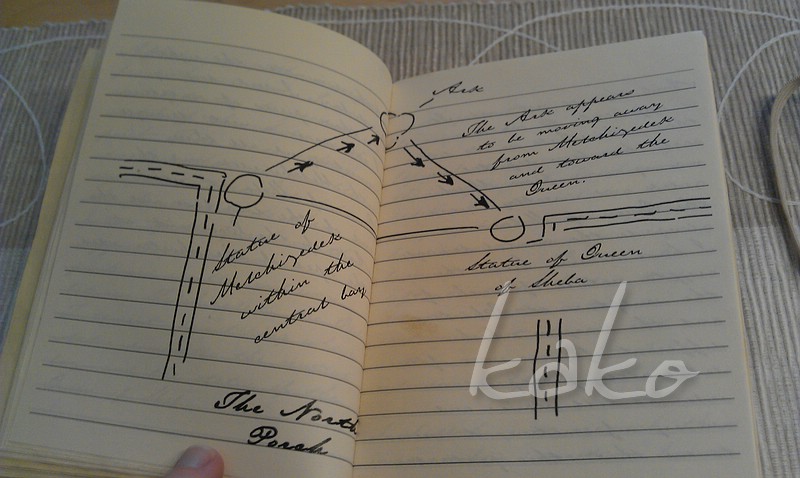 Statue of
Melchizedek
within the
central bay
The North
Porch
Ark
The Ark appears
to be moving away
from Melchizedek
and toward the
Queen.
Statue of Queen
of Sheba
kako